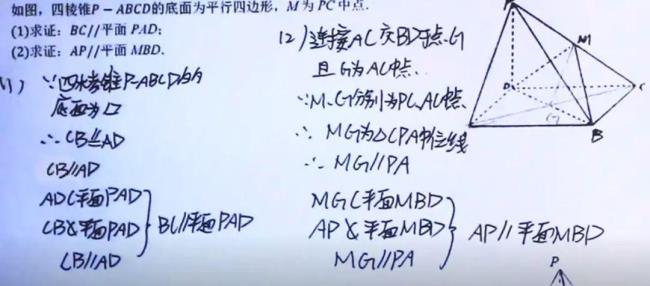 如图,四棱锥P-ABCD的底面为平行四边形,M为PC中点.
(1)求证:BC//平面PAD;
(2)求证:AP//平面MBD.
(1) ∵四棱锥P-ABCD的
底面为▱
∴CB∥=AD
CB//AD
AD⊂平面PAD
CB⊄平面PAD
CB//AD
BC//平面PAD
(2)连接AC交BD于点G
且G为AC中点.
∵M、G分别为PC、AC中点.
∴MG为△CPA中位线
∴MG//PA
MG⊂平面MBD
AP⊄平面MBD
MG//PA
AP//平面MBD
M
D
C
G
B
P